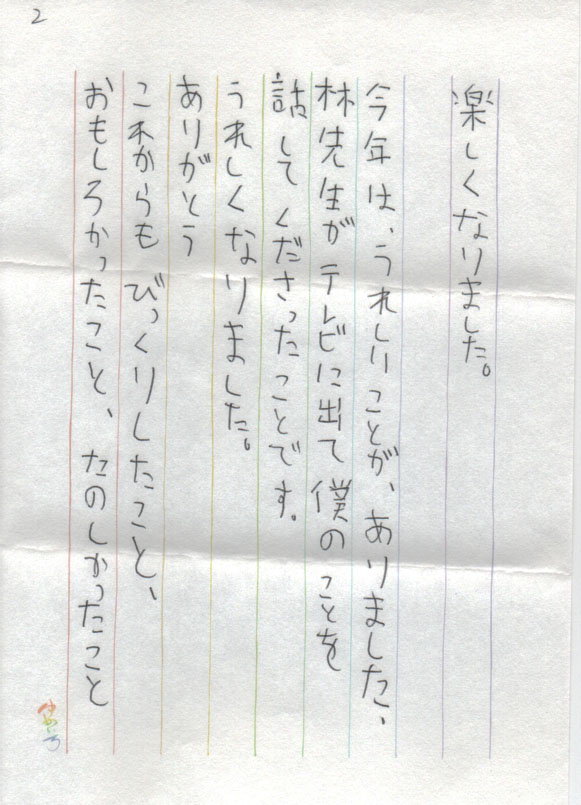 2
楽しくなりました。
今年は、うれしいことが、ありました、
林先生がテレビに出て僕のことを
話してくださったことです。
うれしくなりました。
ありがとう
これからも びっくりしたこと、
おもしろかったこと、たのしかったこと